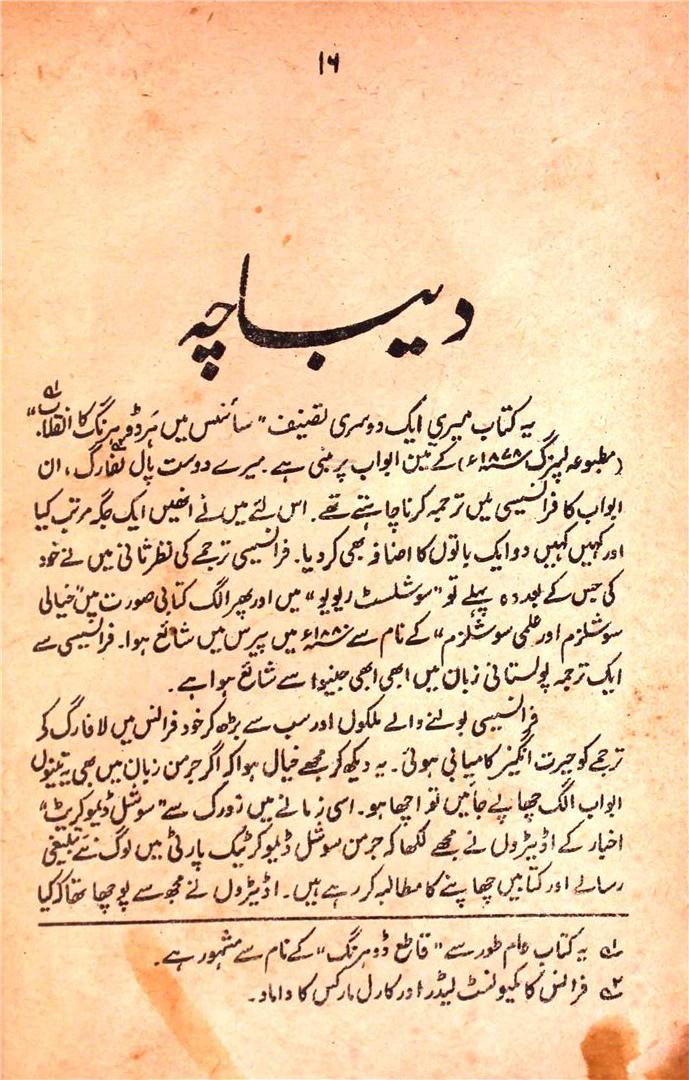 ۱۶
دیباچہ
یہ کتاب میری ایک دوسری تصنیف "سائنس میں ہَر ڈوہرنگ کا انقلاب"؎۱
(مطبوعہ لپزگ ۱۸۷۸ء) کے تین ابواب پر مبنی ہے۔ میرے دوست پال لفارگ؎۲، ان
ابواب کا فرانسیسی میں ترجمہ کرنا چاہتے تھے۔ اس لئے میں نے انھیں ایک جگہ مرتب کیا
اور کہیں کہیں دو ایک باتوں کا اضافہ بھی کر دیا۔ فرانسیسی ترجمے کی نظر ثانی میں نے خود
کی جس کے بعد وہ پہلے تو "سوشلسٹ ریویو" میں اور پھر الگ کتابی صورت میں "خیالی
سوشلزم اور علمی سوشلزم" کے نام سے ۱۸۸۰ء میں پیرس میں شائع ہوا۔ فرانسیسی سے
ایک ترجمہ پولستانی زبان میں ابھی ابھی جنیوا سے شائع ہوا ہے۔
فرانسیسی بولنے والے ملکوں اور سب سے بڑھ کر خود فرانس میں لافارگ کے
ترجمے کو حیرت انگیز کامیابی ہوئی۔ یہ دیکھ کر مجھے خیال ہوا کہ اگر جرمن زبان میں بھی یہ تینوں
ابواب الگ چھاپے جائیں تو اچھا ہو۔ اسی زمانے میں زورک سے "سوشل ڈیموکریٹ"
اخبار کے اڈیٹروں نے مجھے لکھا کہ جرمن سوشل ڈیموکرٹیک پارٹی میں لوگ نئے تبلیغی
رسالے اور کتابیں چھاپنے کا مطالبہ کر رہے ہیں۔ اڈیٹروں نے مجھ سے پوچھا تھا کہ کیا
؎۱ یہ کتاب عام طور سے "قاطع ڈوہرنگ" کے نام سے مشہور ہے۔
؎۲ فرانس کا کمیونسٹ لیڈر اور کارل مارکس کا داماد۔